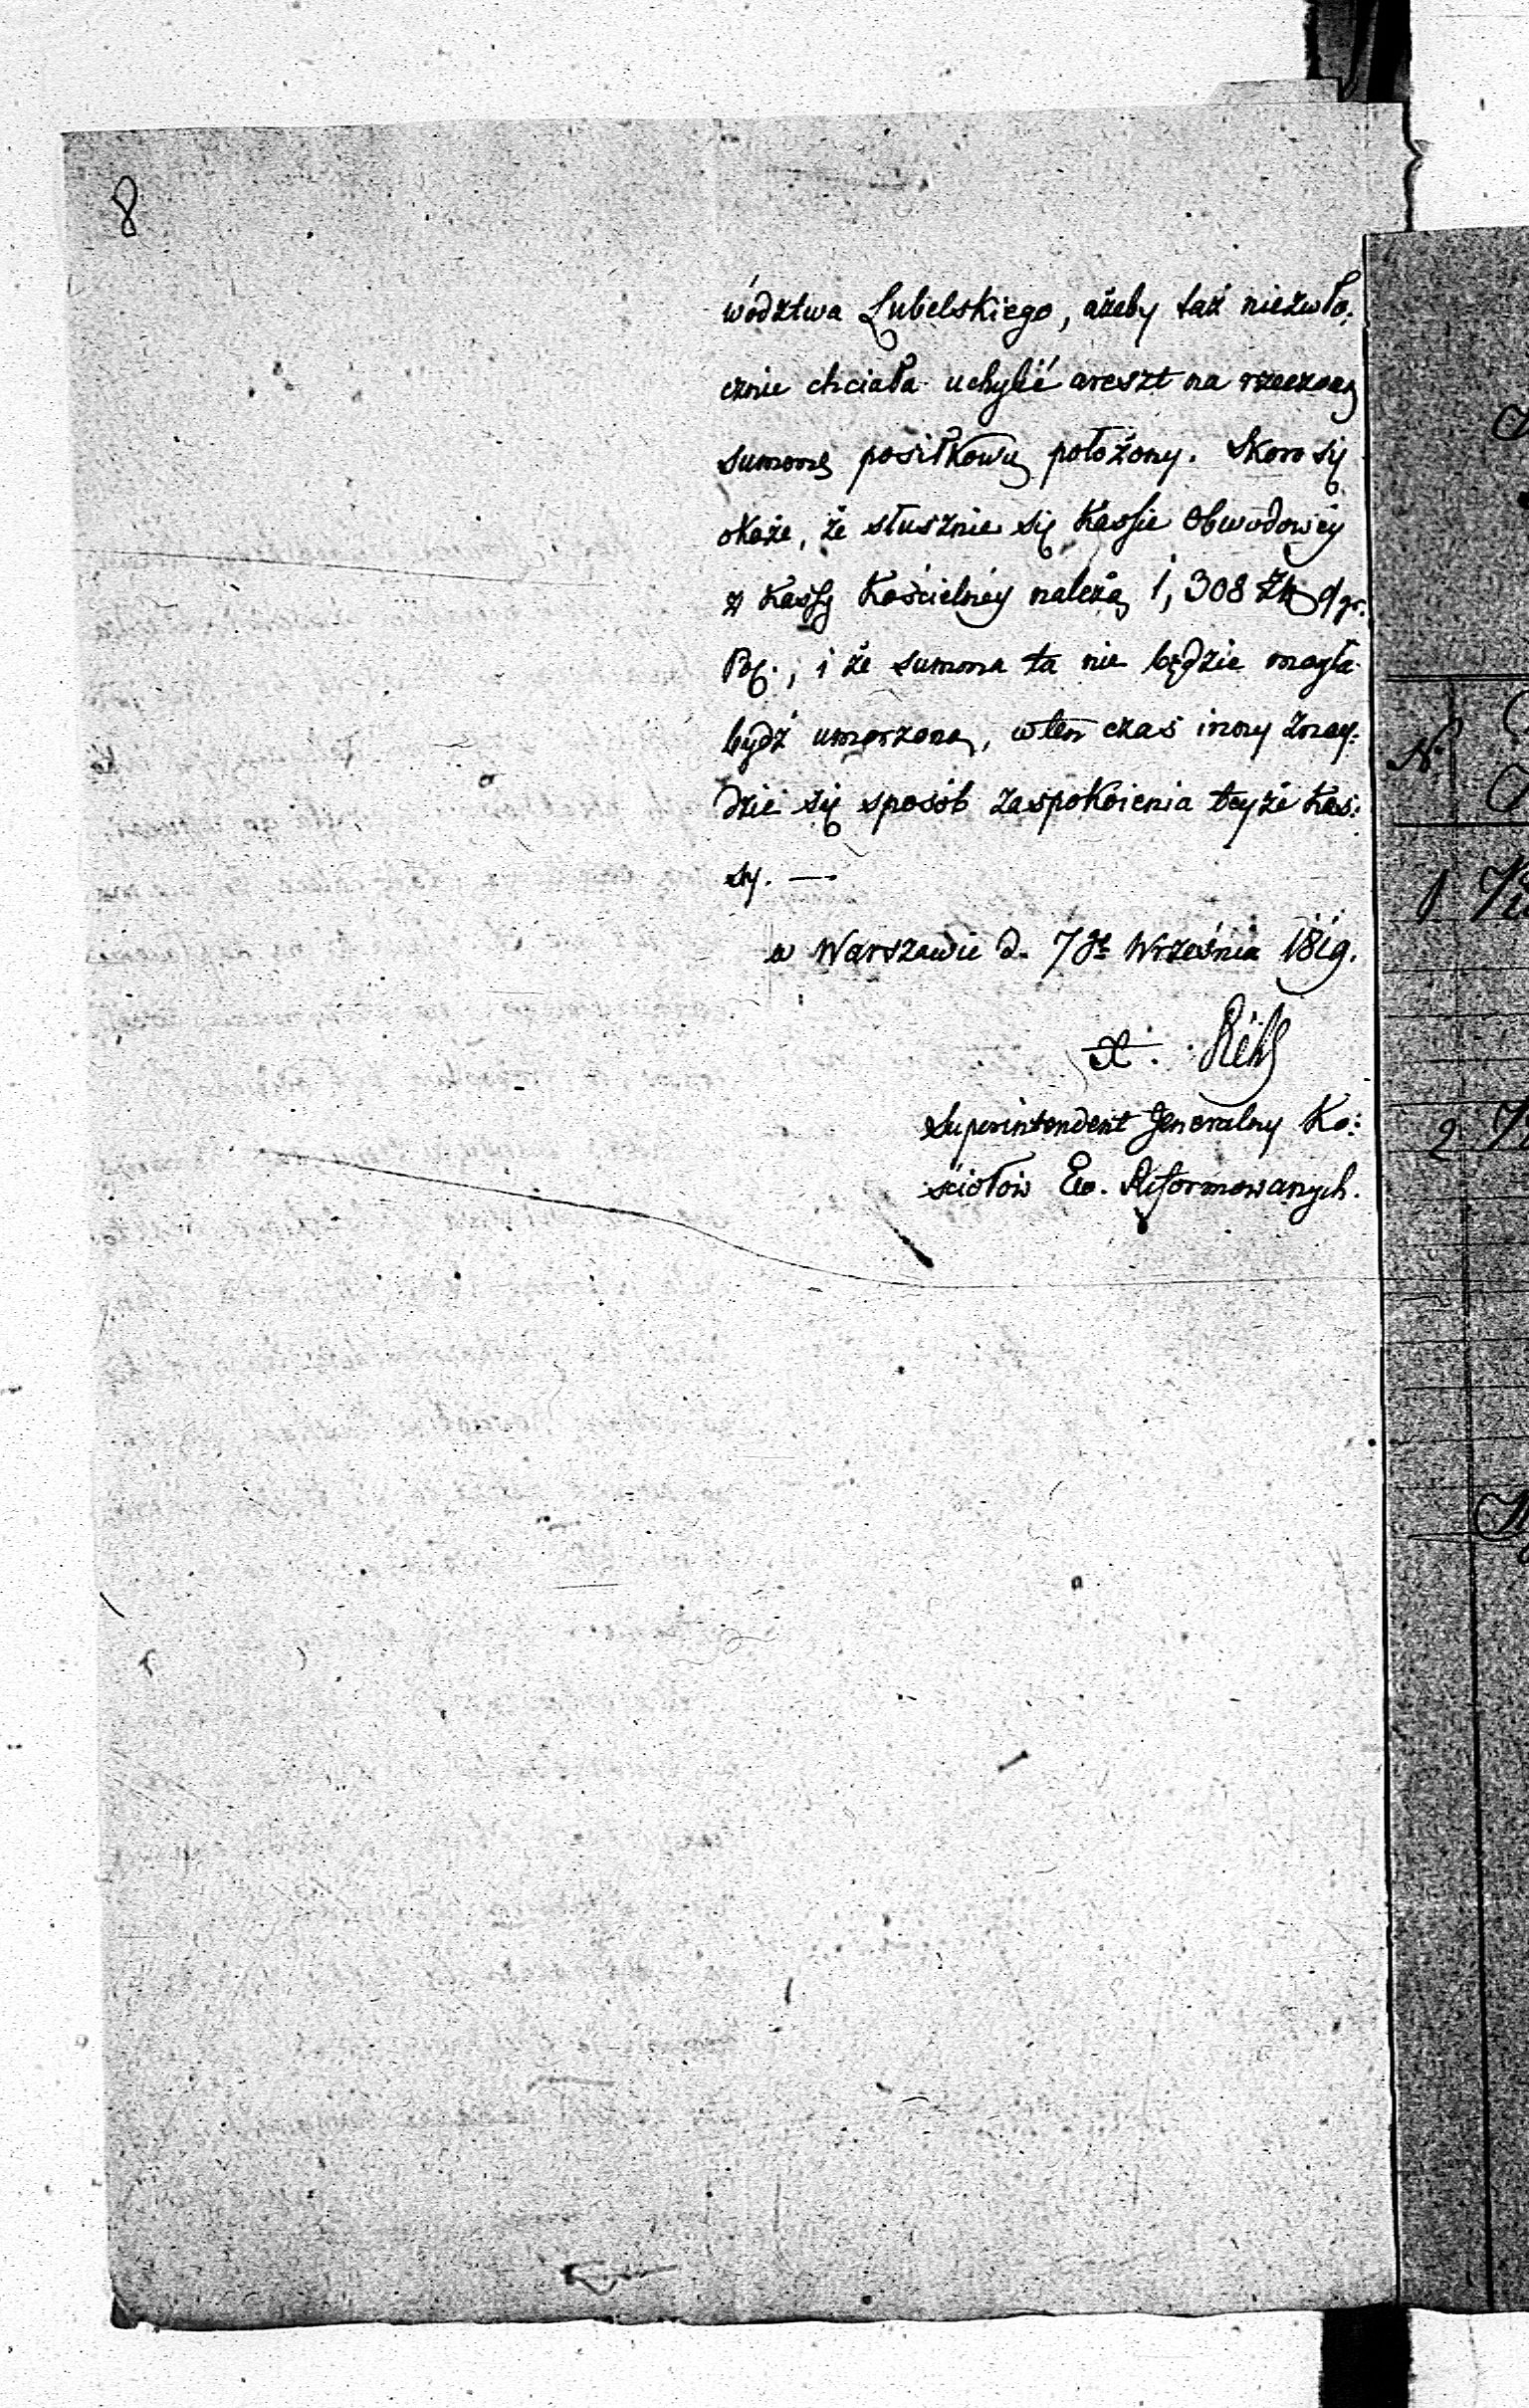 8
wództwa Lubelskiego, ażeby taż niezwło:
cznie chciała uchylić areszt na rzeczoną
summę posiłkową położony. Skoro się
okaże, że słusznie się Kassie Obwodowéy
z Kassy Kościelnéy należą 1,308 Złł 9/gr.
Pol., i że summa ta nie będzie mogła
bydź umorzoną, w ten czas inny znay:
dzie się sposób zaspokoienia teyże Kas:
sy. —
w Warszawie d. 7go Września 1819.
X.
Superintendent Jeneralny Ko:
ściołów Ew. Reformowanych.
N
1
2